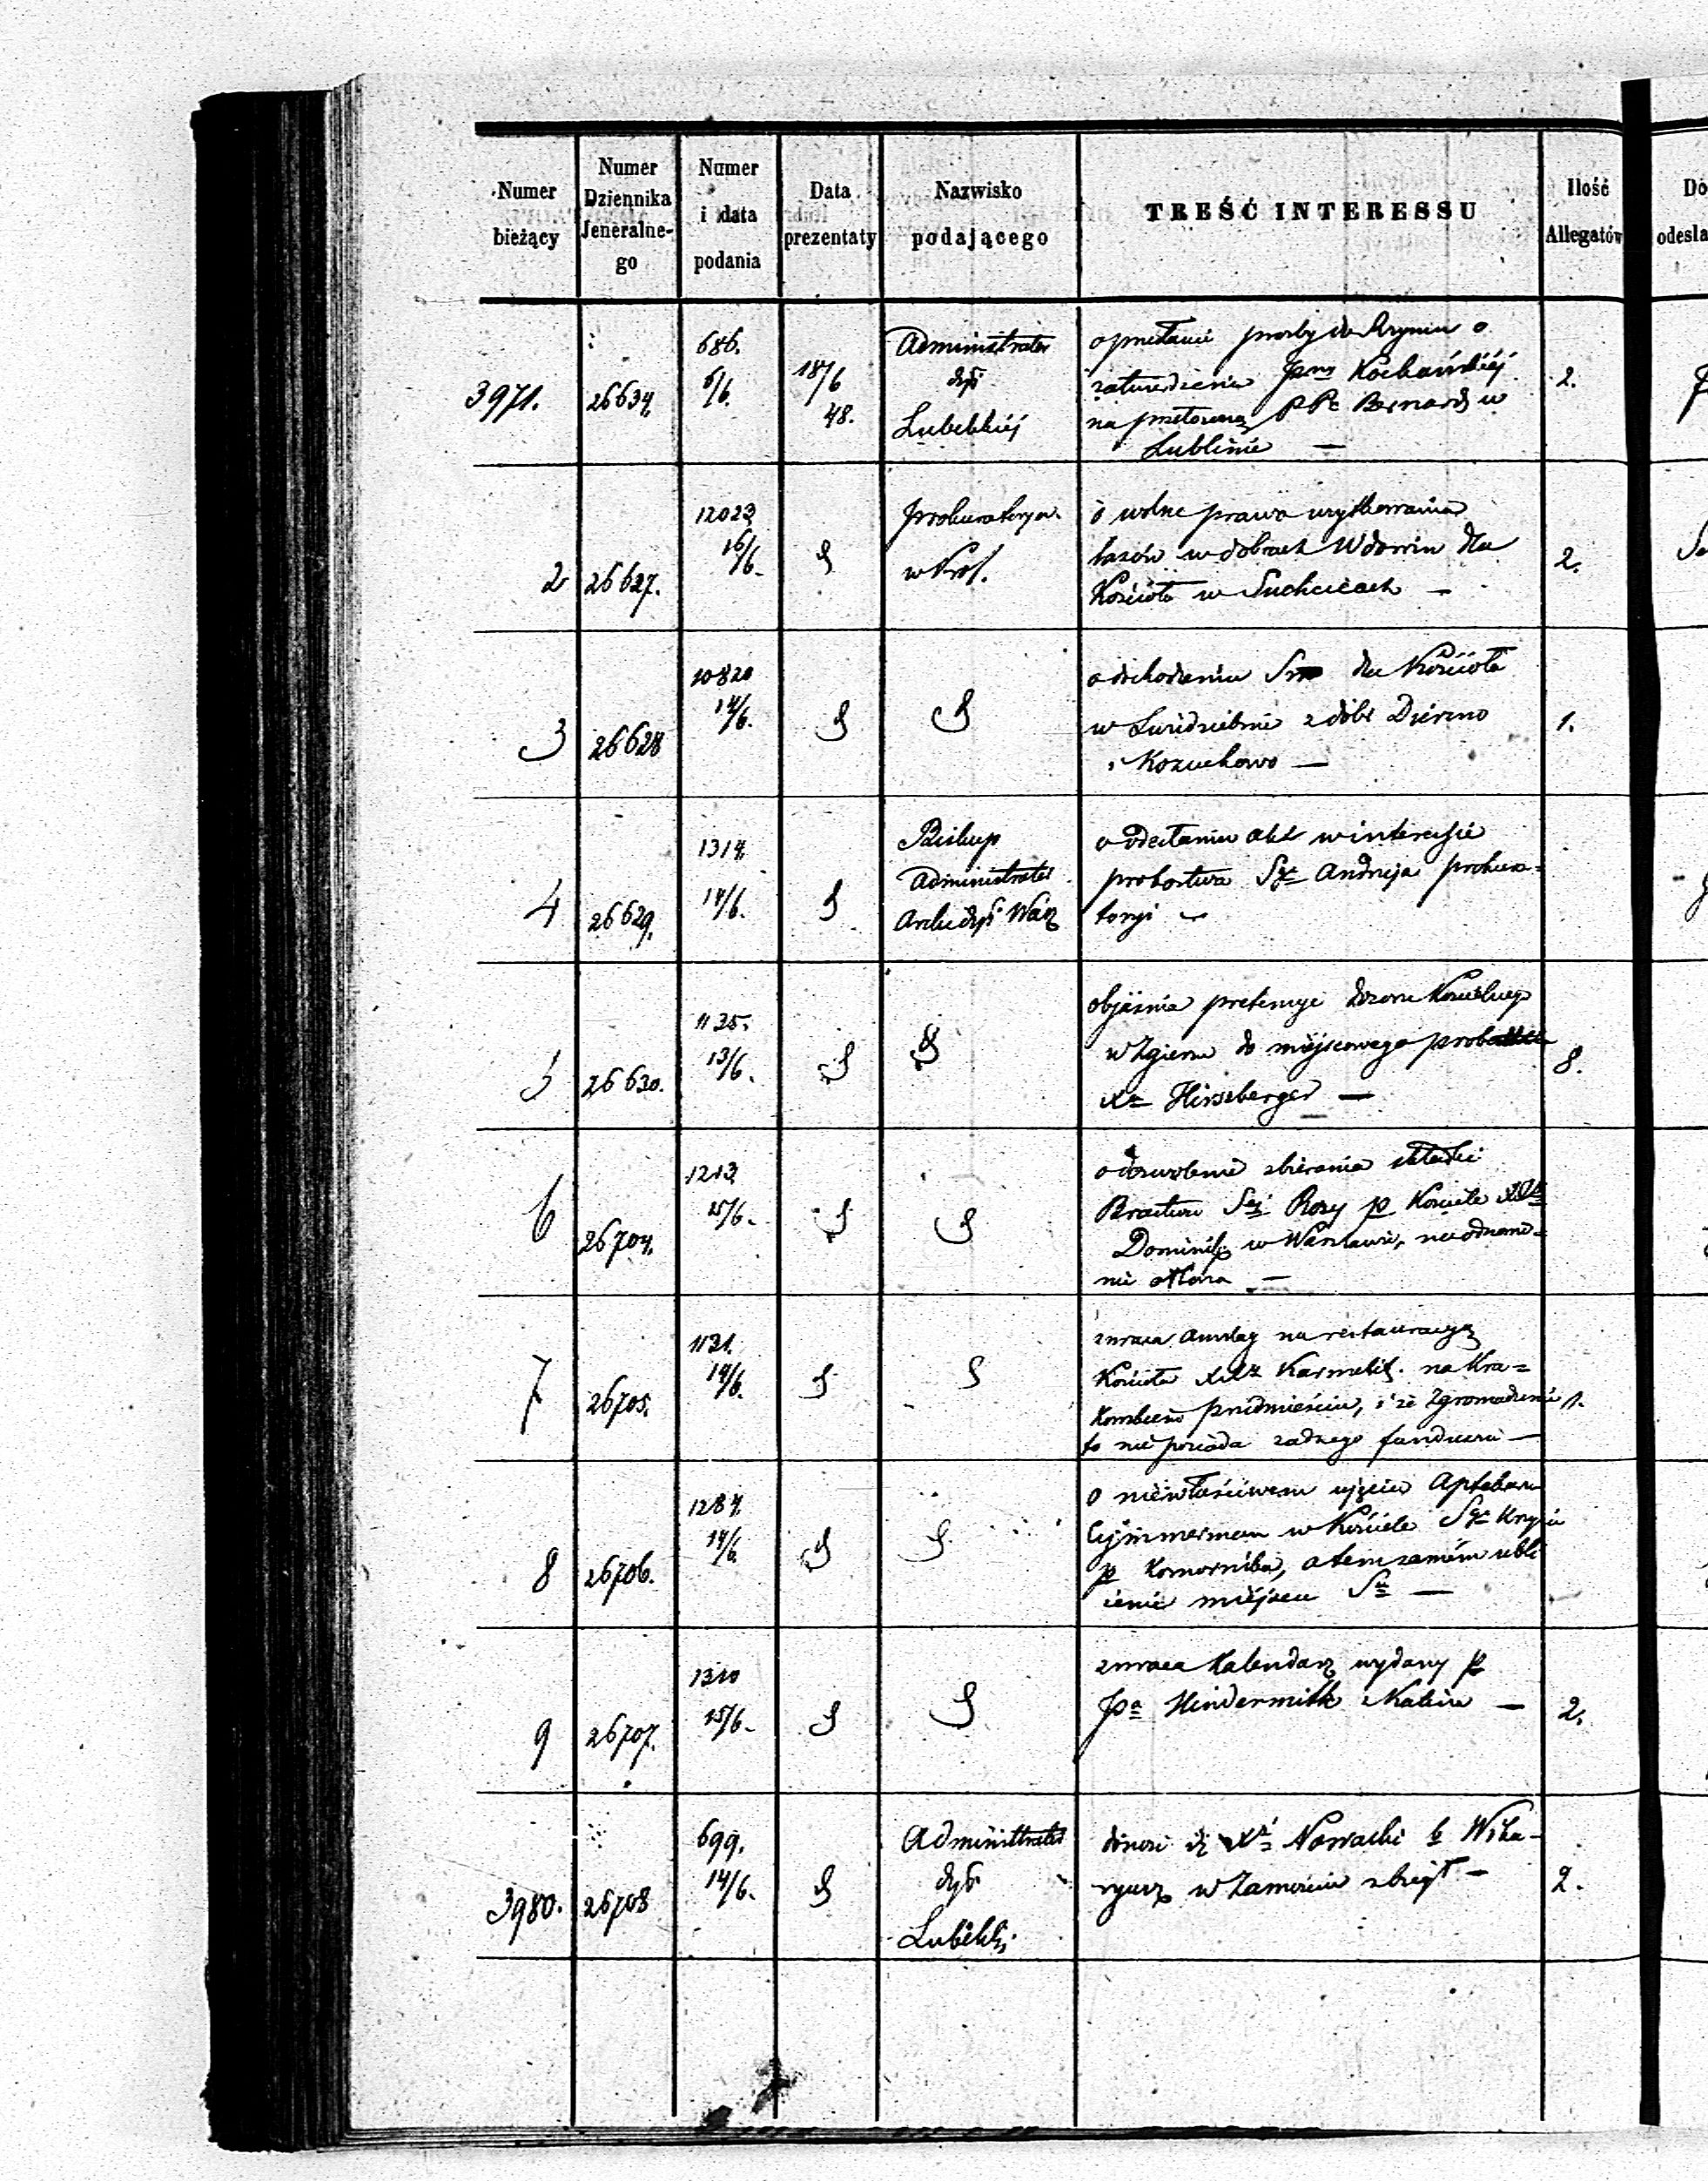 Numer bieżący
Numer Dziennika Jeneralnego
Numer i data podania
Data prezentaty
Nazwisko podającego
TREŚĆ INTERESSU
Ilość Allegatów
Do
odesła
3971.
26634.
686.
6/6.
18/6
48.
Administrator
dyi
Lubelskiéj
o przesłanie prosby do Rzymu o
zatwierdzenie Pny Kochańskiéj
na przełożoną PP. Bernard w
Lublinie —
2.
2
26627.
12023
16/6.
prokuratorya
w Król.
o wolne prawo użytkowania
lasów w dobrach Wdowin dla
Kościoła w Suchcicach —
2.
3
26628
10820
14/6.
o dochodzeniu dla Kościoła
w Świedziebnie z dóbr Dzierzno
i Kozuchowo —
1.
4
26629.
1314.
14/6.
Biskup
Administrator
Archidyi Warsz
o odesłaniu akt w interesie
probostwa Sgo Andrzeja prokura-
toryi
5
26630.
1135.
13/6.
objaśnia pretensye dozoru Kościelnego
w Zgierzu do miejscowego
Xa Hirszberger —
8.
6
26704.
1213
15/6.
o dozwolenie zbierania składki
Bractwu Sej Rozy p Kościele
Dominik w Warszawie, na odnowie-
nie ołtarza —
7
26705.
1131.
14/6.
zwraca anszlag na restauracyą
Kościoła XXz Karmelit. na Kra-
kowskiem przedmieściu, i że Zgromadzenie
to nie posiada żadnego funduszu —
1.
8
26706.
1284.
14/6.
o niewłaściwem ujęciu Aptekarza
Cymmerman w Kościele Sgo Krzyża
p Komornika, a tem samém ubli
żenie miejscu Su —
9
26707.
1310
15/6.
zwraca Kalendarz wydany p
Pa Hindermith z Kalisza —
2.
3980.
26708
699.
14/6.
Administrator
dyi
Lubelski
donosi iż Xi Nowacki b Wika-
ryusz w Zamościu zbiegł —
2.